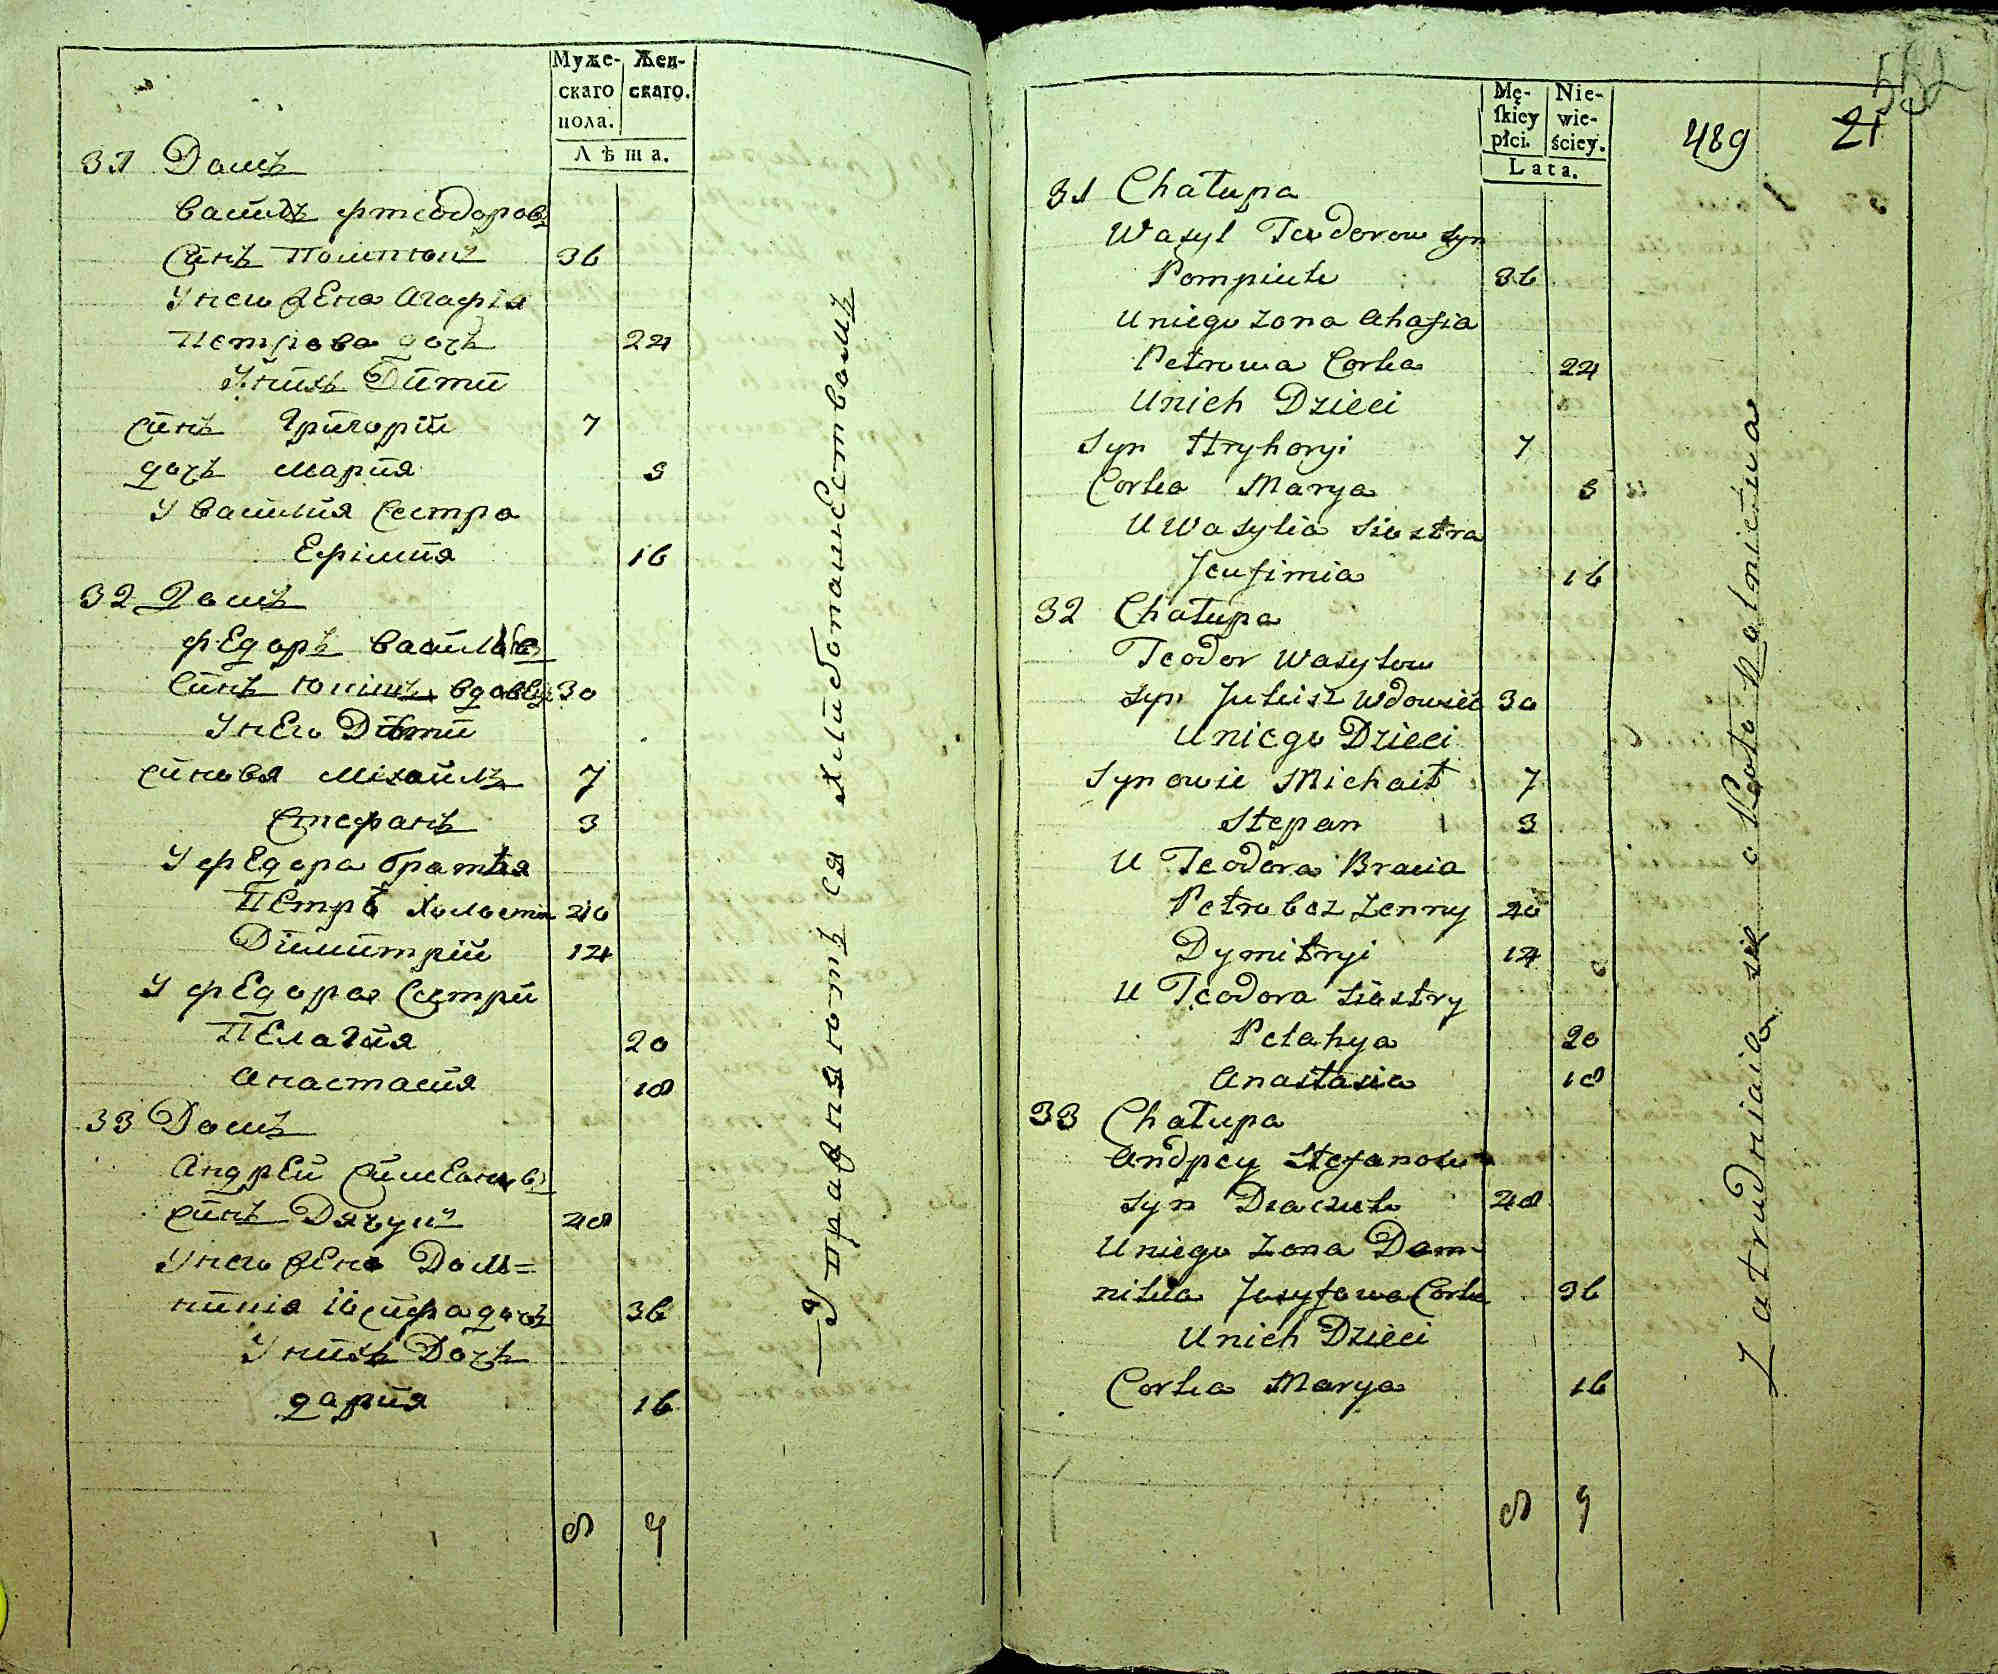 Муже-
скаго
пола.
Жен-
скаго.
Лѣта.
31 Домъ
Василъ Фтеодоровъ
Синъ Помпюкъ 36
У него Жена Агафія
Петрова дочъ 24
У нихъ Дити
Синъ Григорій 7
дочъ Мария 3
У Василия Сестра
Ефимия 16
32 Домъ
Федоръ Василевъ
Синъ вдовецъ 30
У него Дѣти
Синовя Міхаилъ 7
Стефанъ 3
У Федора братья
Петръ Холостий 20
Дімитрій 14
У Федора Сестри
Пелагия 20
Анастасия 18
33 Домъ
Андрей Симеоновъ
Синъ Дячукъ 48
У него Жена Дом=
никія Иосифа дочъ 36
У нихъ Дочъ
Дария 16
8 9
Упражняются хлибопашеством
Mę-
ſkiey
płci.
Nie-
wie-
ściey.
Lata.
489
21
31 Chałupa
Wasyl Teodorow syn
Pompiuk 36
U niego Zona Ahafia
Petrowa Corka 24
U nich Dzieci
Syn Hryhoryi 7
Corka Marya 3
U Wasylia Siostra
Jeufimia 16
32 Chałupa
Teodor Wasylow
syn Wdowiec 30
U niego Dzieci
Synowie Michaił 7
Stepan 3
U Teodora Bracia
Petro bez Zenny 20
Dymitryi 14
U Teodora Siostry
Pelahya 20
Anastasia 18
33 Chałupa
Andrey Stefanow
syn Diaczuk 48
U niego Zona Dom-
nikia Jusyfowa Corka 36
U nich Dzieci
Corka Marya 16
8 9
Zatrudniaią się około Rolnictwa